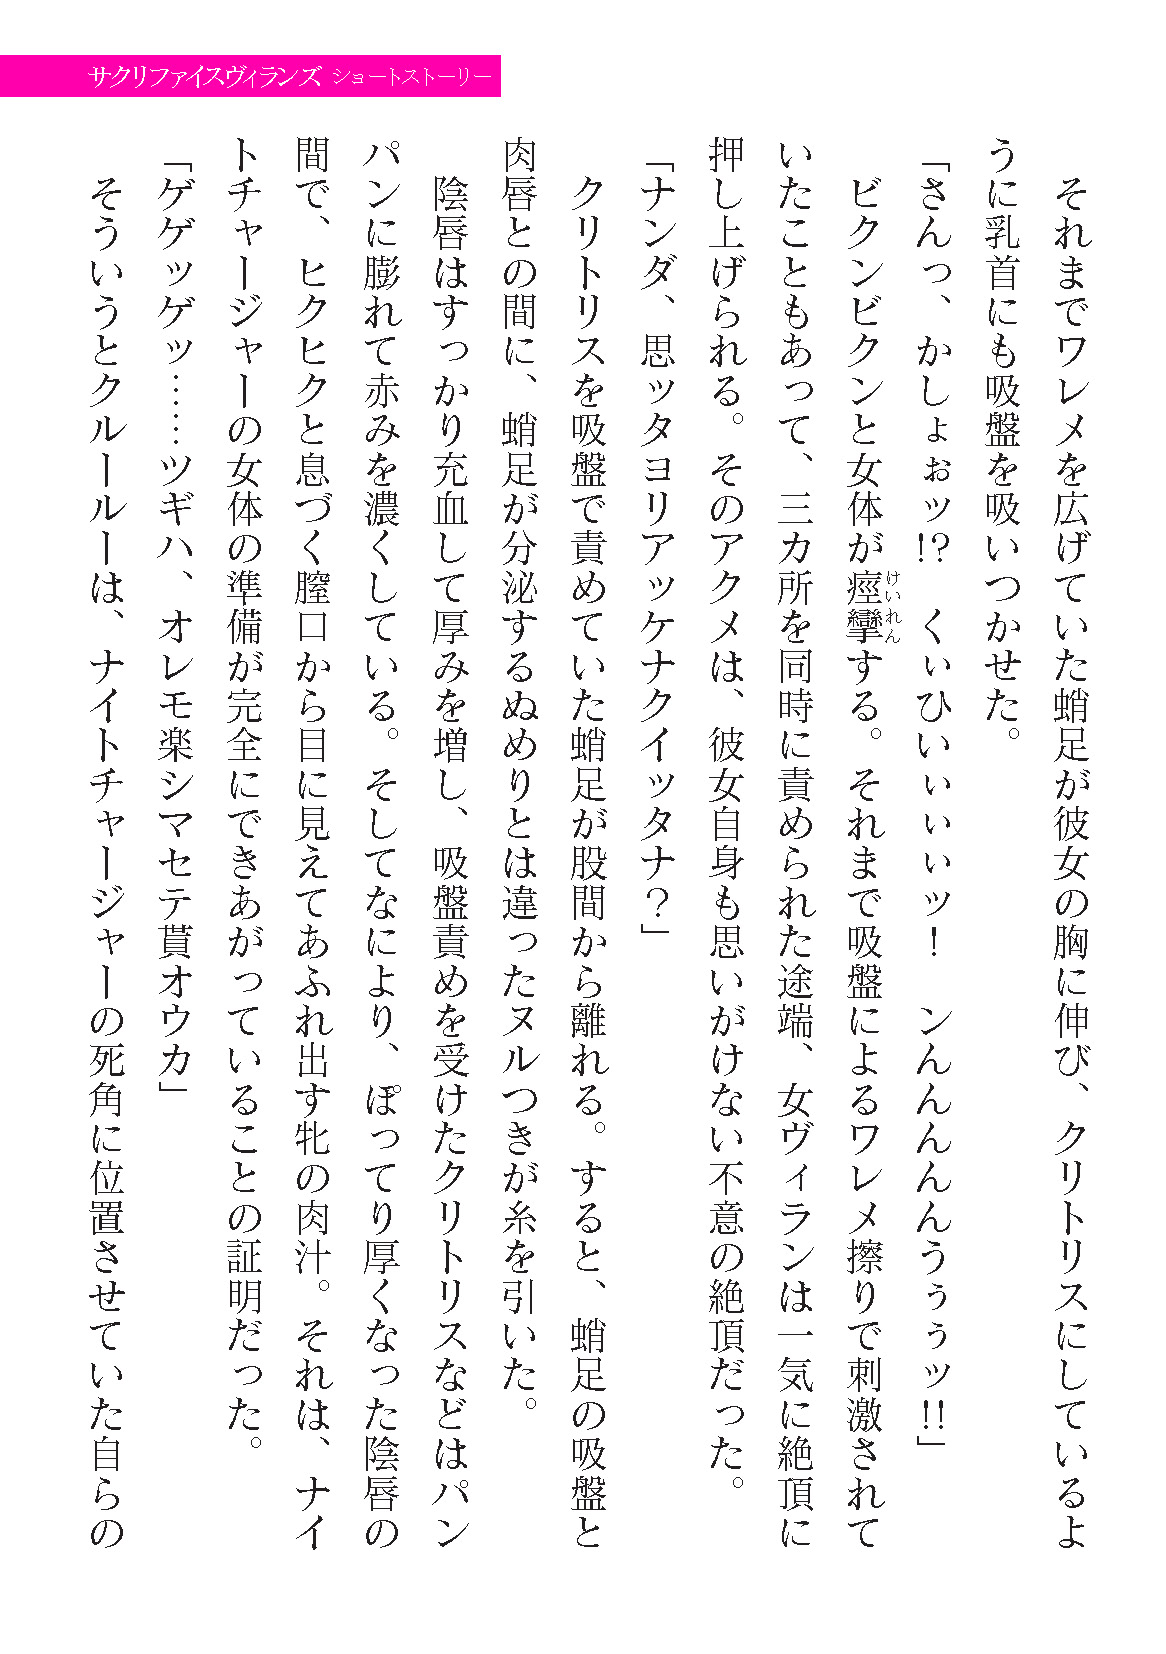 サクリファイスヴィランズ ショートストーリー
それまでワレメを広げていた蛸足が彼女の胸に伸び、クリトリスにしているよ
うに乳首にも吸盤を吸いつかせた。
「さんっ、かしょぉッ!? くぃひいぃぃぃッ！ ンんんんんんうぅぅッ!!」
ビクンビクンと女体が痙攣する。それまで吸盤によるワレメ擦りで刺激されて
けいれん
いたこともあって、三カ所を同時に責められた途端、女ヴィランは一気に絶頂に
押し上げられる。そのアクメは、彼女自身も思いがけない不意の絶頂だった。
「ナンダ、思ッタヨリアッケナクイッタナ？」
クリトリスを吸盤で責めていた蛸足が股間から離れる。すると、蛸足の吸盤と
肉唇との間に、蛸足が分泌するぬめりとは違ったヌルつきが糸を引いた。
陰唇はすっかり充血して厚みを増し、吸盤責めを受けたクリトリスなどはパン
パンに膨れて赤みを濃くしている。そしてなにより、ぽってり厚くなった陰唇の
間で、ヒクヒクと息づく膣口から目に見えてあふれ出す牝の肉汁。それは、ナイ
トチャージャーの女体の準備が完全にできあがっていることの証明だった。
「ゲゲッゲッ……ツギハ、オレモ楽シマセテ貰オウカ」
そういうとクルールーは、ナイトチャージャーの死角に位置させていた自らの